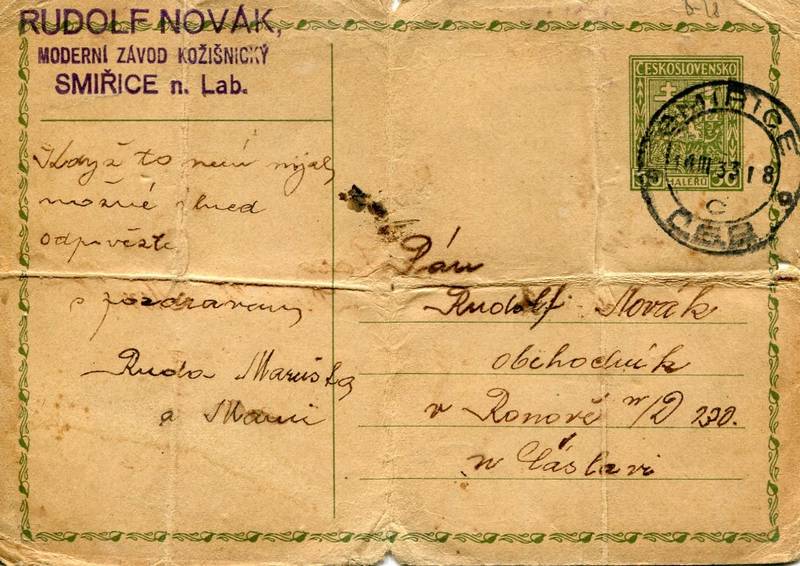 RUDOLF NOVÁK,
MODERNÍ ZÁVOD KOŽIŠNICKÝ
SMIŘICE n. Lab.
Když to není
možné hned
odpovězte
s pozdravem
Ruda Maruška
a Mami
ČESKOSLOVENSKO
50 HALÉŘŮ 50
SMIŘICE
III 33 18
C
Č.S.R.
Pán
Rudolf Novák
obchodník
v Ronově n/D 230.
u Čáslavi